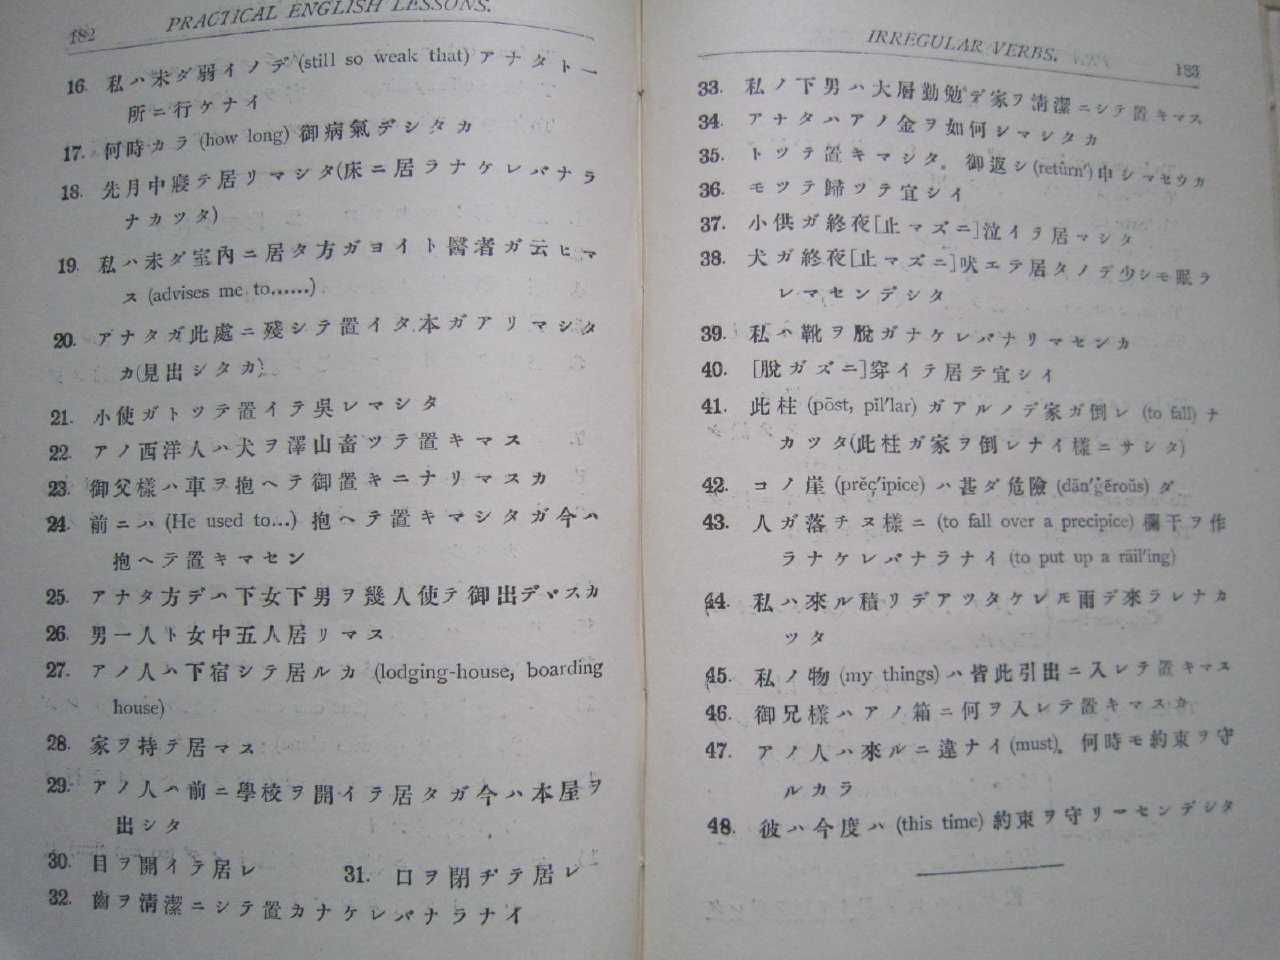 182
PRACTICAL ENGLISH LESSONS.
16. 私ハ未ダ弱イノデ (still so weak that) アナタト一
所ニ行ケナイ
17. 何時カラ (how long) 御病氣デシタカ
18. 先月中寢テ居リマシタ(床ニ居ラナケレバナラ
ナカツタ)
19. 私ハ未ダ室內ニ居タ方ガヨイト醫者ガ云ヒマ
ス (advises me to......)
20. アナタガ此處ニ殘シテ置イタ本ガアリマシタ
カ(見出シタカ)
21. 小使ガトツテ置イテ吳レマシタ
22. アノ西洋人ハ犬ヲ澤山畜ツテ置キマス
23. 御父樣ハ車ヲ抱ヘテ御置キニナリマスカ
24. 前ニハ (He used to...) 抱ヘテ置キマシタガ今ハ
抱ヘテ置キマセン
25. アナタ方デハ下女下男ヲ幾人使テ御出デヽスカ
26. 男一人ト女中五人居リマス
27. アノ人ハ下宿シテ居ルカ (lodging-house, boarding
house)
28. 家ヲ持テ居マス
29. アノ人ハ前ニ學校ヲ開イテ居タガ今ハ本屋ヲ
出シタ
30. 目ヲ開イテ居レ 31. 口ヲ閉ヂテ居レ
32. 齒ヲ清潔ニシテ置カナケレバナラナイ
IRREGULAR VERBS.
183
33. 私ノ下男ハ大層勤勉デ家ヲ清潔ニシテ置キマス
34. アナタハアノ金ヲ如何シマシタカ
35. トツテ置キマシタ。御返シ (retûrn′) 申シマセウカ
36. モツテ歸ツテ宜シイ
37. 小供ガ終夜[止マズニ]泣イテ居マシタ
38. 犬ガ終夜[止マズニ]吠エテ居タノデ少シモ眠ラ
レマセンデシタ
39. 私ハ靴ヲ脫ガナケレバナリマセンカ
40. [脫ガズニ]穿イテ居テ宜シイ
41. 此柱 (pōst, pil′lar) ガアルノデ家ガ倒レ (to fall) ナ
カツタ(此柱ガ家ヲ倒レナイ樣ニサシタ)
42. コノ崖 (prĕç′ipice) ハ甚ダ危險 (dān′ġēroŭs) ダ
43. 人ガ落チヌ樣ニ (to fall over a precipice) 欄干ヲ作
ラナケレバナラナイ (to put up a rāil′ing)
44. 私ハ來ル積リデアツタケレドモ雨デ來ラレナカ
ツタ
45. 私ノ物 (my things) ハ皆此引出ニ入レテ置キマス
46. 御兄樣ハアノ箱ニ何ヲ入レテ置キマスカ
47. アノ人ハ來ルニ違ナイ (must)。何時モ約束ヲ守
ルカラ
48. 彼ハ今度ハ (this time) 約束ヲ守リマセンデシタ